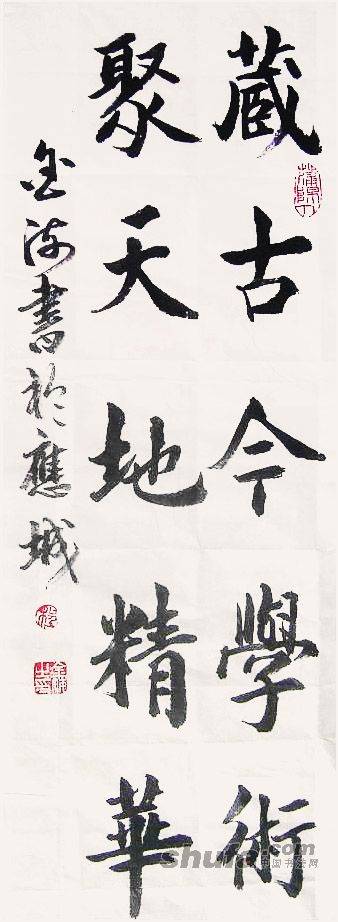 藏古今學術
聚天地精華
金海書於應城
shufa.com
中国书法网